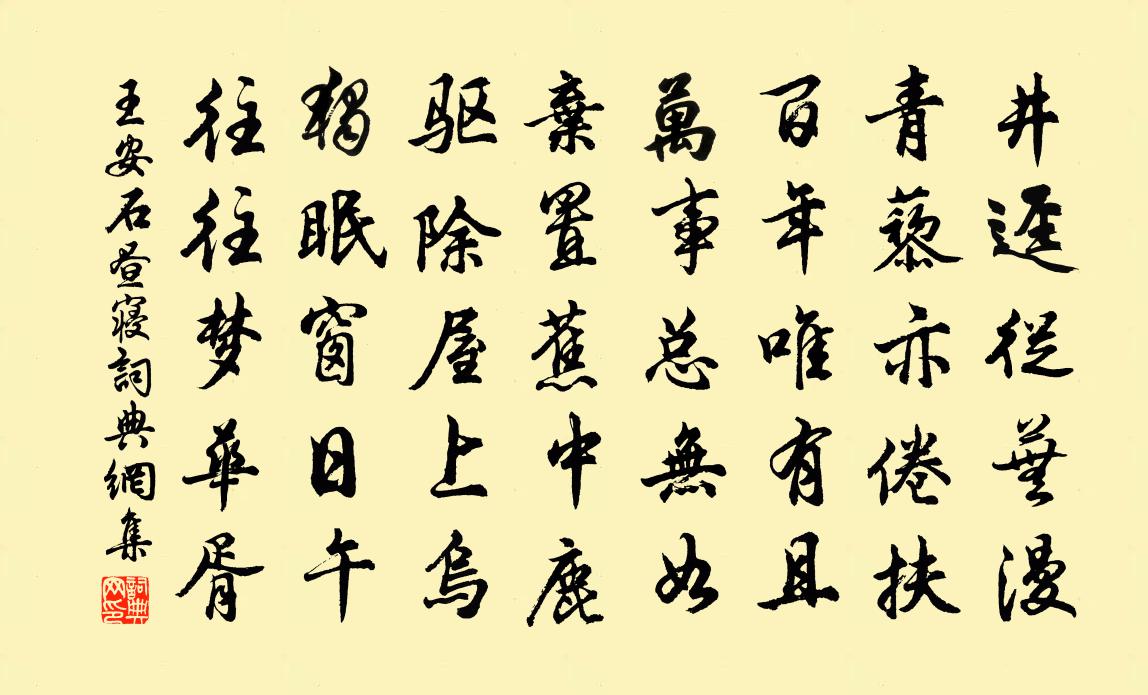 井逕從蕪漫
青藜亦倦扶
百年唯有且
萬事总無如
棄置蕉中鹿
驱除屋上烏
獨眠窗日午
往往梦華胥
王安石昼寝詞典網集
詞典网印